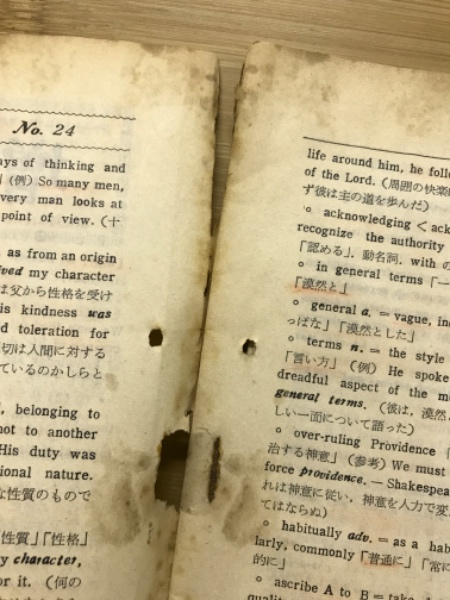 No. 24
ays of thinking and
」(例) So many men,
very man looks at
point of view. (十
, as from an origin
ived my character
は父から性格を受け
is kindness was
d toleration for
切は人間に対する
ているのかしらと
, belonging to
not to another
His duty was
ional nature.
な性質のもので
「性質」「性格」
y character,
or it. (何の
life around him, he follo
of the Lord. (周囲の快楽
ず彼は主の道を歩んだ)
○ acknowledging < ack
recognize the authority
「認める」. 動名詞. with の
○ in general terms「一
「漠然と」
○ general a. = vague, in
っぱな」「漠然とした」
○ terms n. = the style
「言い方」(例) He spoke
dreadful aspect of the m
general terms. (彼は, 漠然
しい一面について語った)
○ over-ruling Providence「
治する神意」(参考) We must
force providence. — Shakespea
れは神意に従い, 神意を人力で変
てはならぬ)
○ habitually adv. = as a hab
larly, commonly「普通に」「常に
的に」
○ ascribe A to B = take